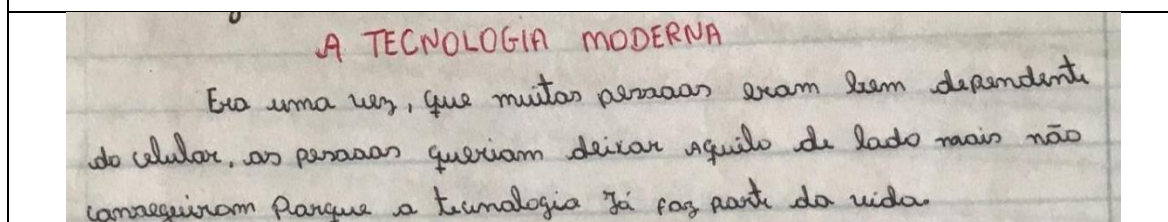 A TECNOLOGIA MODERNA
Era uma vez, que muitas pessoas eram bem dependente
do celular, as pessoas queriam deixar aquilo de lado mais não
conseguiram Porque a tecnologia Já faz parte da vida.